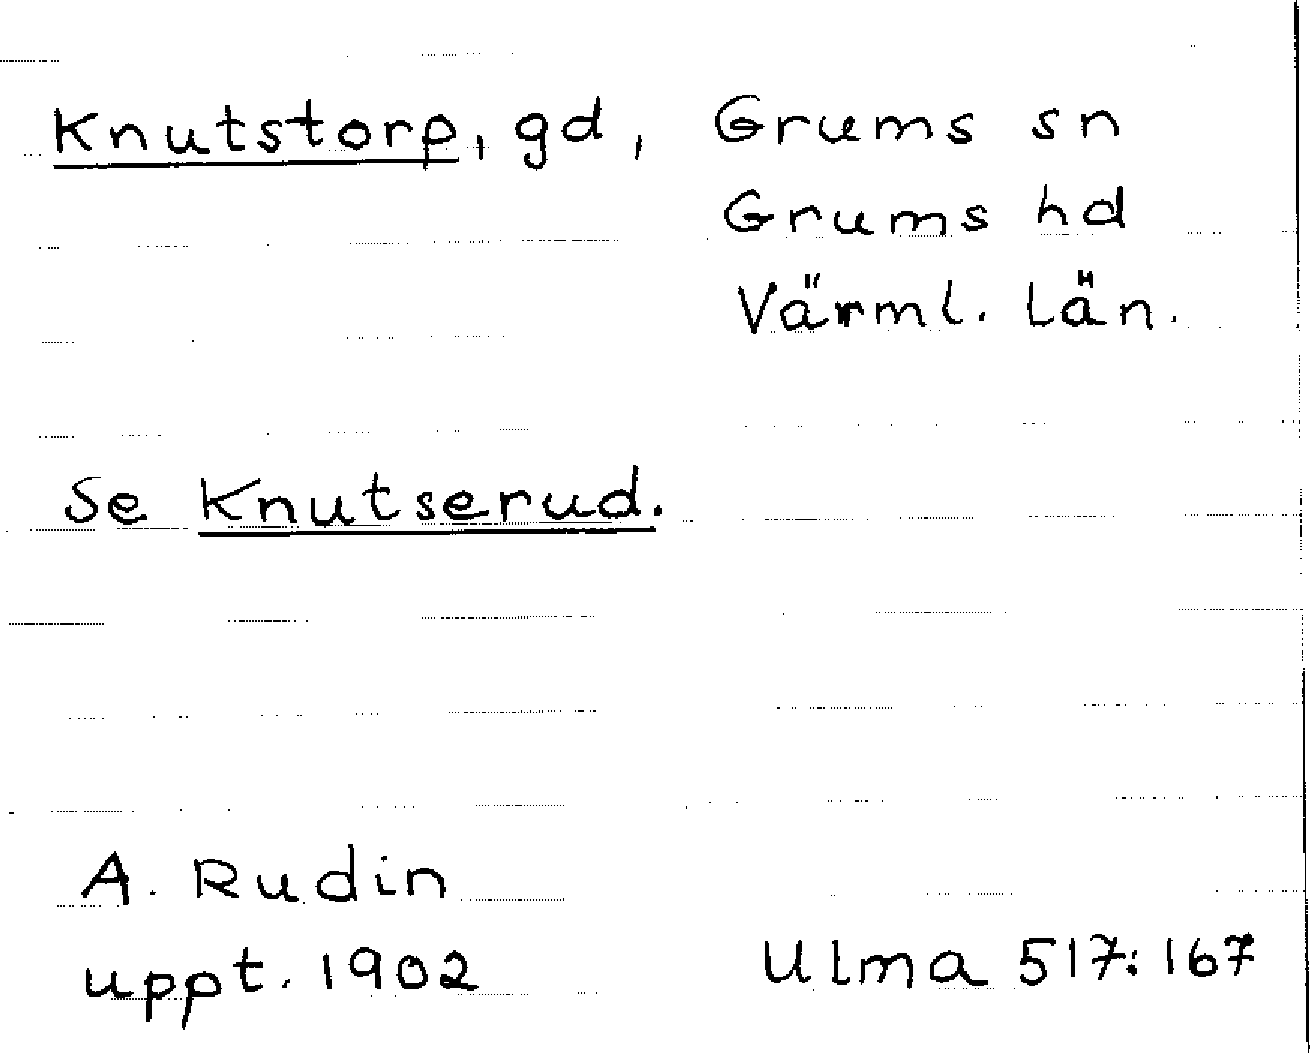 Knutstorp, gd, Grums sn
Grums hd
Värml. län.
Se Knutserud.
A. Rudin
uppt. 1902
Ulma 517:167